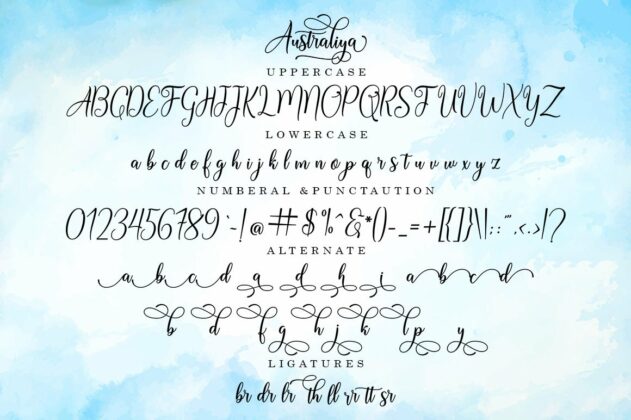 Australiya
UPPERCASE
ABCDEFGHIJKLMNOPQRSTUVWXYZ
LOWERCASE
a b c d e f g h i j k l m n o p q r s t u v w x y z
NUMBERAL &PUNCTAUTION
0123456789 `~!@#$%^&*()-_=+[{]}\|;:'",<.>/?
ALTERNATE
a b c d q d h i a b c d
b d f g h j k l p y
LIGATURES
br dr lr th ll rr tt sr